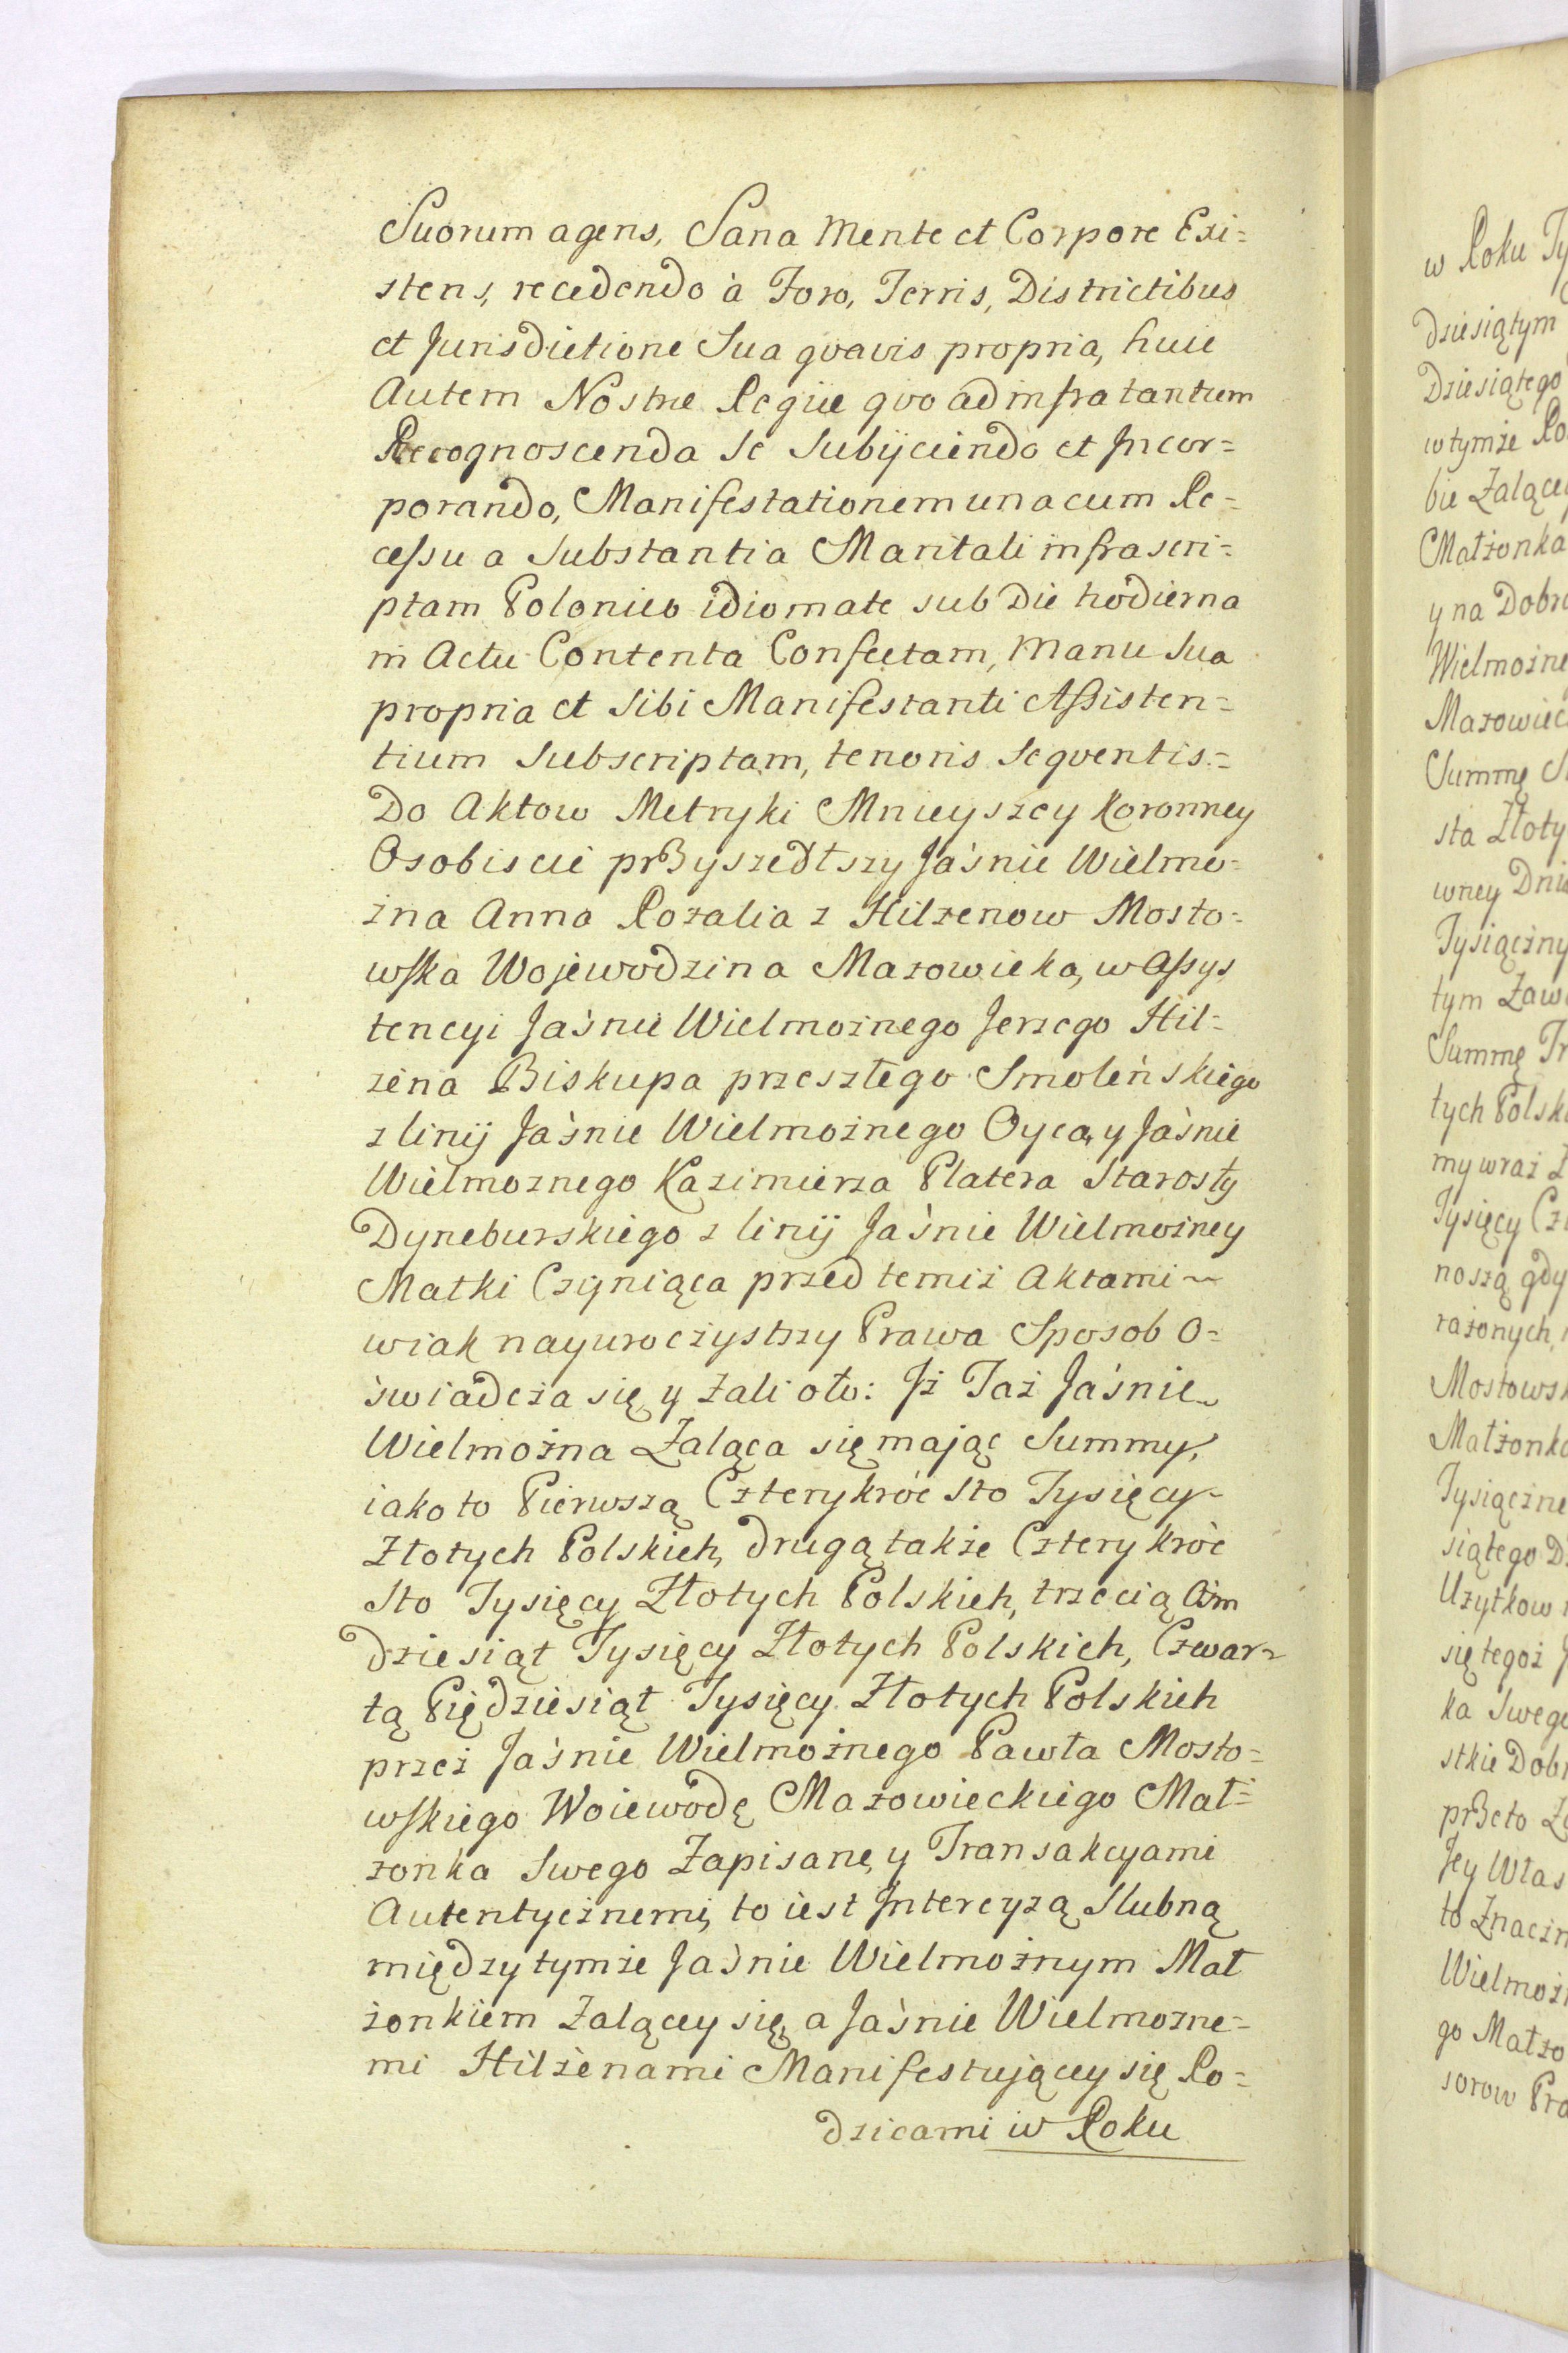 Suorum agens, Sana Mente et Corpore Exi=
stens, recedendo à Foro, Terris, Districtibus
et Jurisdictione Sua qvavis propria, huic
Autem Nostræ Regiæ qvo ad infra tantum
Recognoscenda Se Subijciendo et Incor=
porando, Manifestationem una cum Re=
cessu a Substantia Maritali infra scri=
ptam Polonico idiomate sub Die hodierna
in Actu Contenta Confectam, Manu Sua
propria et Sibi Manifestanti Assisten=
tium Subscriptam, tenoris Seqventis.=
Do Aktow Metryki Mnieyszey Koronney
Osobiscie przyszedłszy Jaśnie Wielmo=
zna Anna Rozalia z Hilzenow Mosto=
wska Wojewodzina Mazowiecka, w Assys
tencyi Jaśnie Wielmożnego Jerzego Hil=
zena Biskupa przeszłego Smoleńskiego
z linij Jaśnie Wielmożnego Oyca, y Jaśnie
Wielmoznego Kazimierza Platera Starosty
Dyneburskiego z linij Jaśnie Wielmożney
Matki Czyniąca przed temiż Aktami ~
w iak nayuroczystszy Prawa Sposob O=
świadcza się y żali oto: Iż Taż Jaśnie ~
Wielmożna Żaląca się mając Summy,
iako to Pierwszą Czterykróć Sto Tysięcy ~
Złotych Polskich, drugą także Czterykróć
Sto Tysięcy Złotych Polskich, trzecią Ośm
dziesiąt Tysięcy Złotych Polskich, Czwar=
tą Piędziesiąt Tysięcy Złotych Polskich
przez Jaśnie Wielmożnego Pawła Mosto=
wskiego Woiewodę Mazowieckiego Mał=
zonka Swego Zapisane, y Transakcyami
Autentycznemi, to iest Intercyzą Slubną
między tymże Jaśnie Wielmożnym Mał
żonkiem Żalącey się, a Jaśnie Wielmożne=
mi Hilżenami Manifestującey się Ro=
dzicami w Roku
w Roku Ty
dziesiątym
Dziesiątego
w tymże Ro
bie Żalącey
Małżonka
y na Dobra
Wielmożne
Mazowiec
Summę S
sta Złoty
wney Dnia
Tysiączny
tym Zaw
Summę Tr
tych Polski
my wraz Z
Tysięcy Cz
noszą gdy
rażonych,
Mostowsk
Małżonka
Tysiączne
siątego D
Użytkow
się tegoż J
ka Swego
stkie Dobr
przeto Ża
Jey Włas
to Znaczn
Wielmożn
go Małżo
sorow Pra